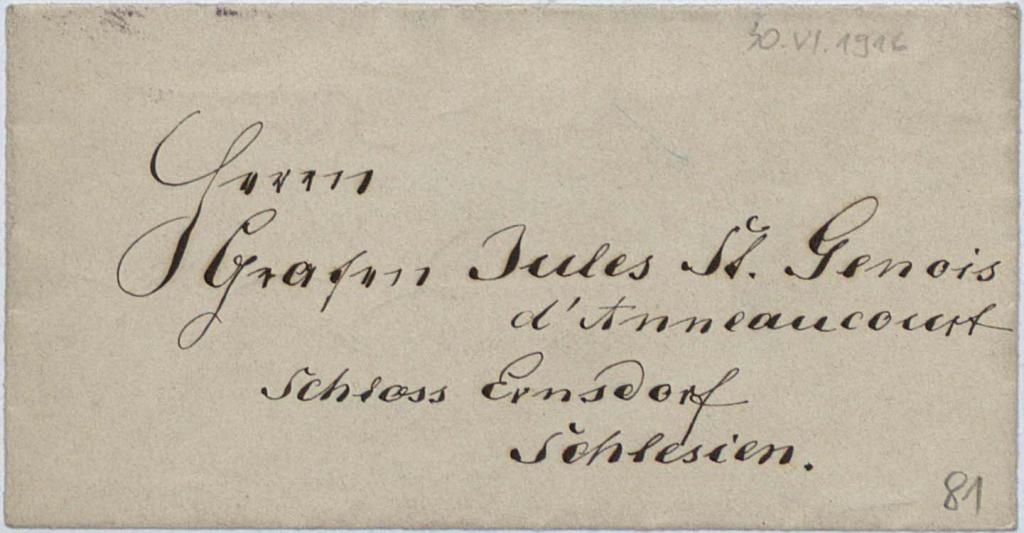 30.VI.1916
Herrn
Grafen Jules St. Genois
d'Anneaucourt
Schloss Ernsdorf
Schlesien.
81